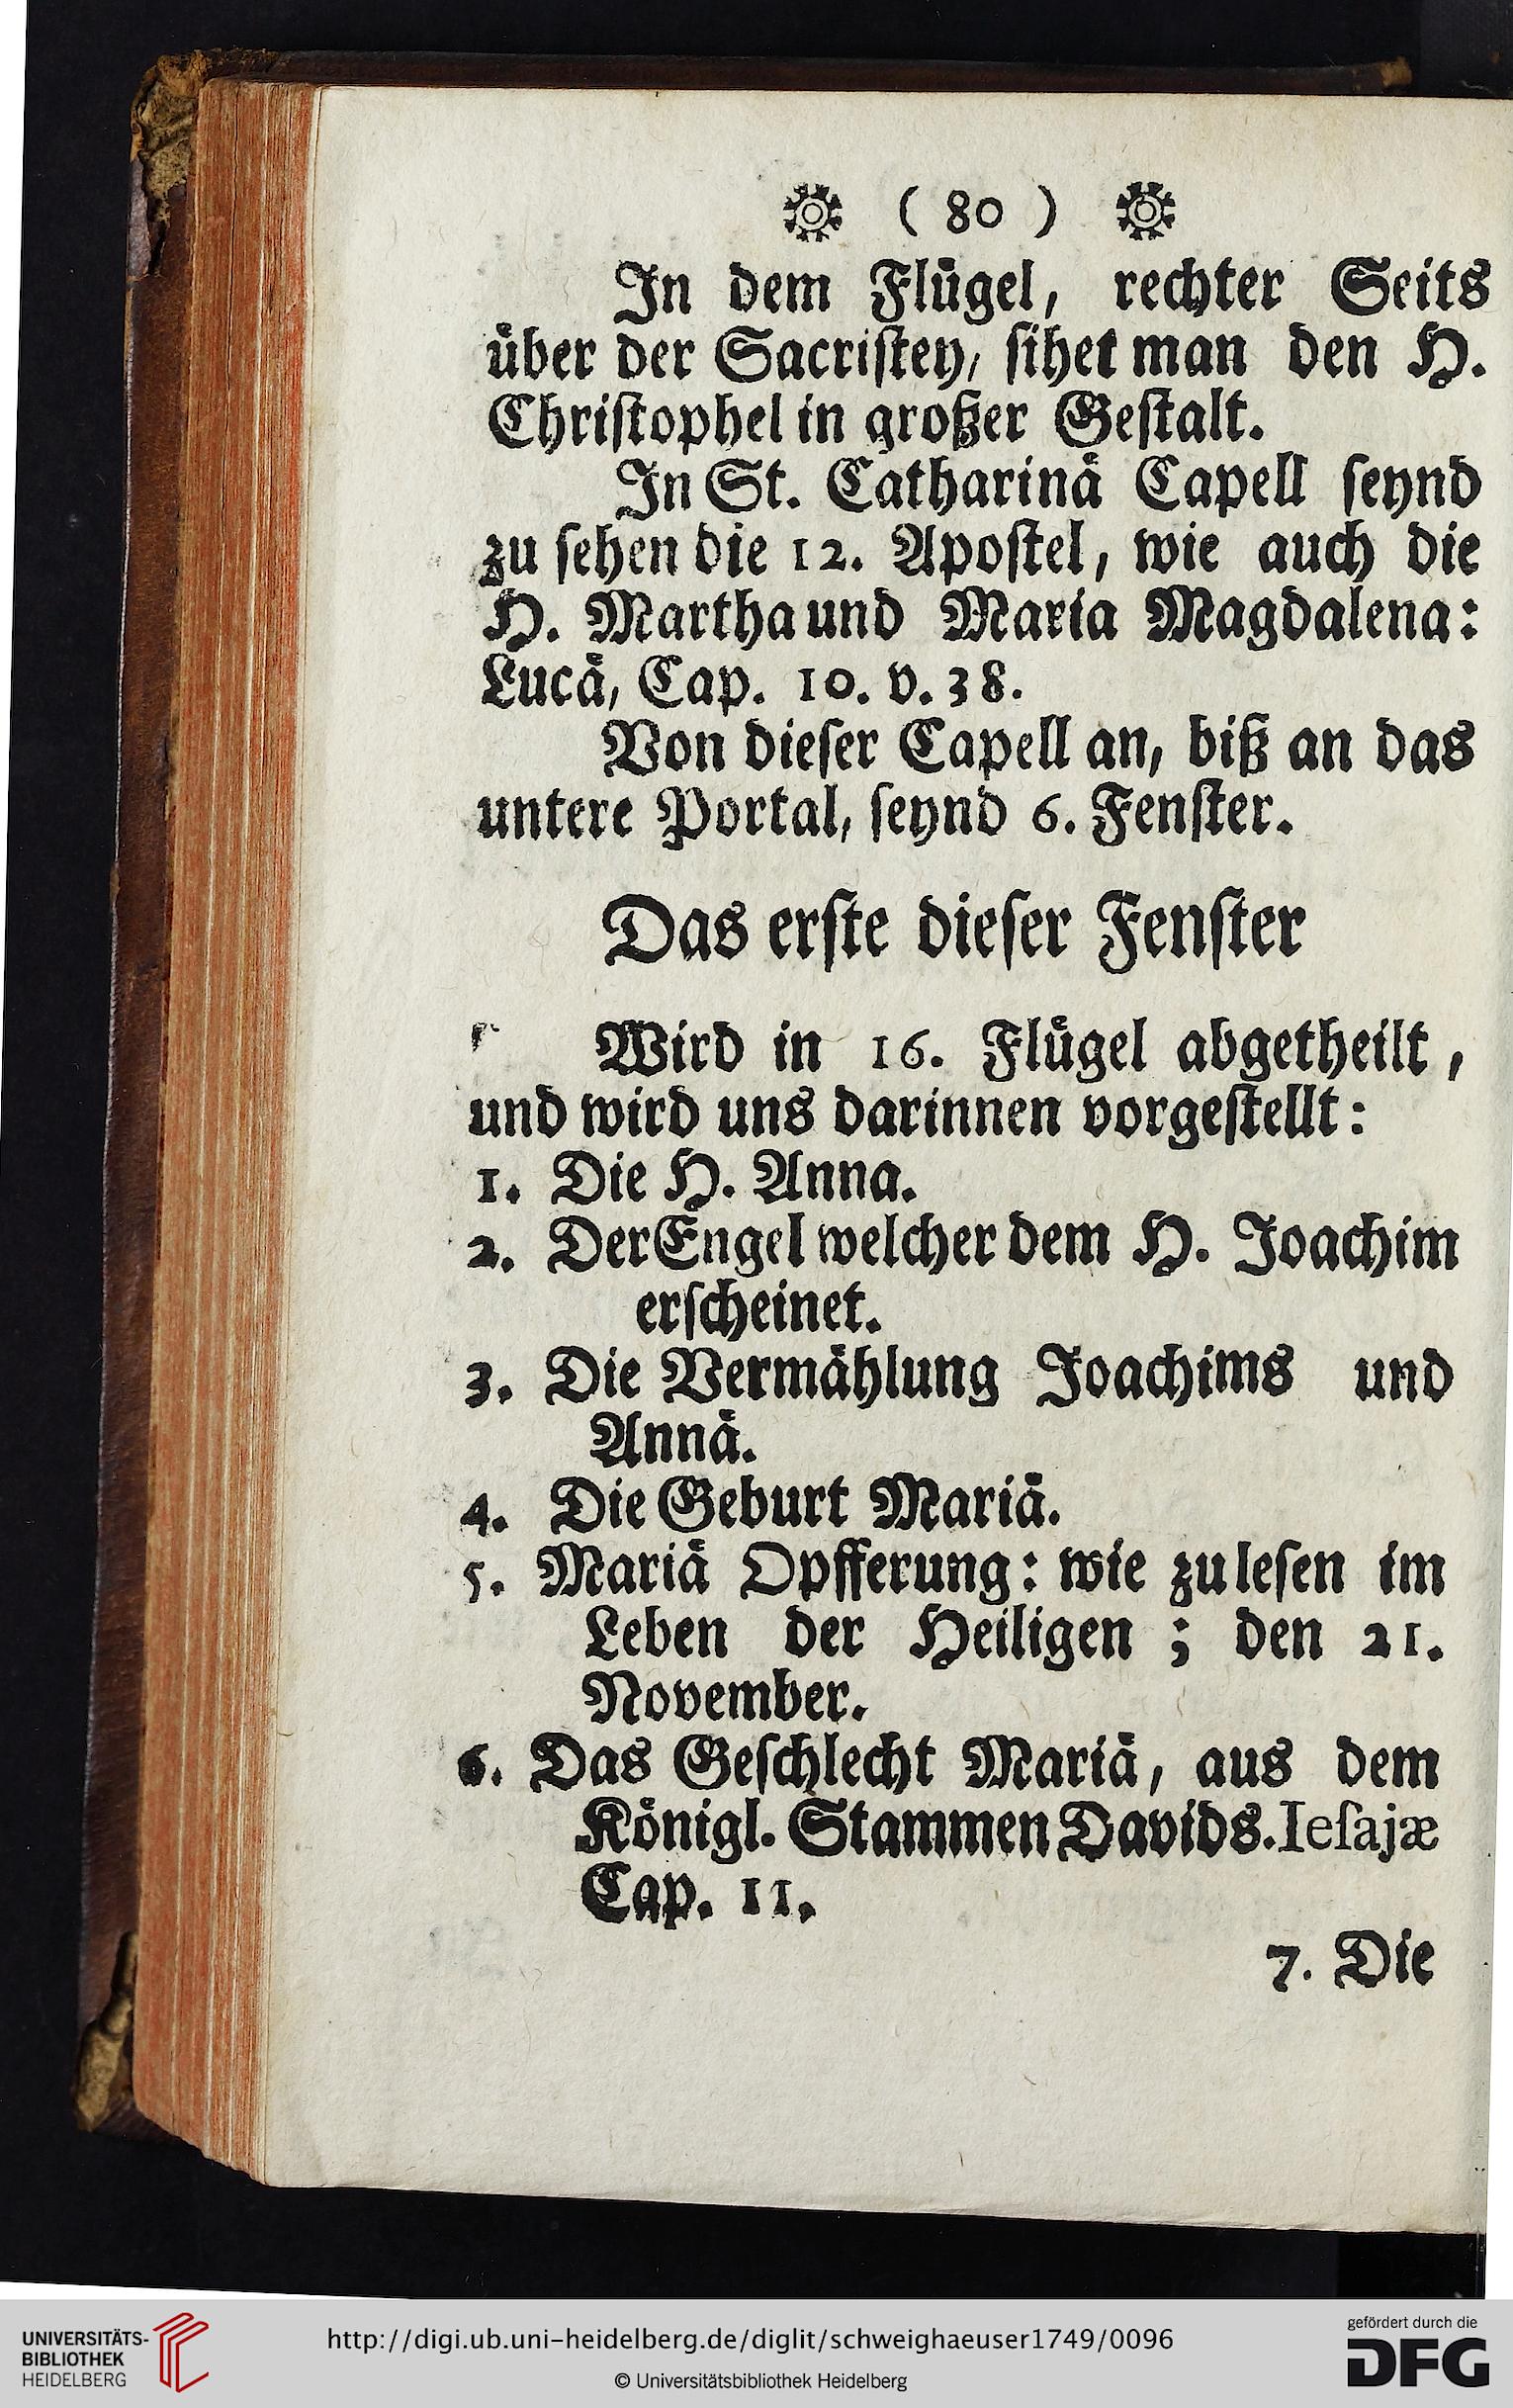 ( 80 )
In dem Flügel, rechter Seits
über der Sacristey, sihet man den H.
Christophel in großer Gestalt.
In St. Catharinä Capell seynd
zu sehen die 12. Apostel, wie auch die
H. Martha und Maria Magdalena:
Lucä, Cap. 10. v. 38.
Von dieser Capell an, biß an das
untere Portal, seynd 6. Fenster.
Das erste dieser Fenster
Wird in 16. Flügel abgetheilt,
und wird uns darinnen vorgestellt:
1. Die H. Anna.
2. Der Engel welcher dem H. Joachim
erscheinet.
3. Die Vermählung Joachims und
Annä.
4. Die Geburt Mariä.
5. Mariä Opfferung: wie zu lesen im
Leben der Heiligen; den 21.
November.
6. Das Geschlecht Mariä, aus dem
Königl. Stammen Davids. Iesajæ
Cap. 11.
7. Die
UNIVERSITÄTS-
BIBLIOTHEK
HEIDELBERG
http://digi.ub.uni-heidelberg.de/diglit/schweighaeuser1749/0096
© Universitätsbibliothek Heidelberg
gefördert durch die
DFG